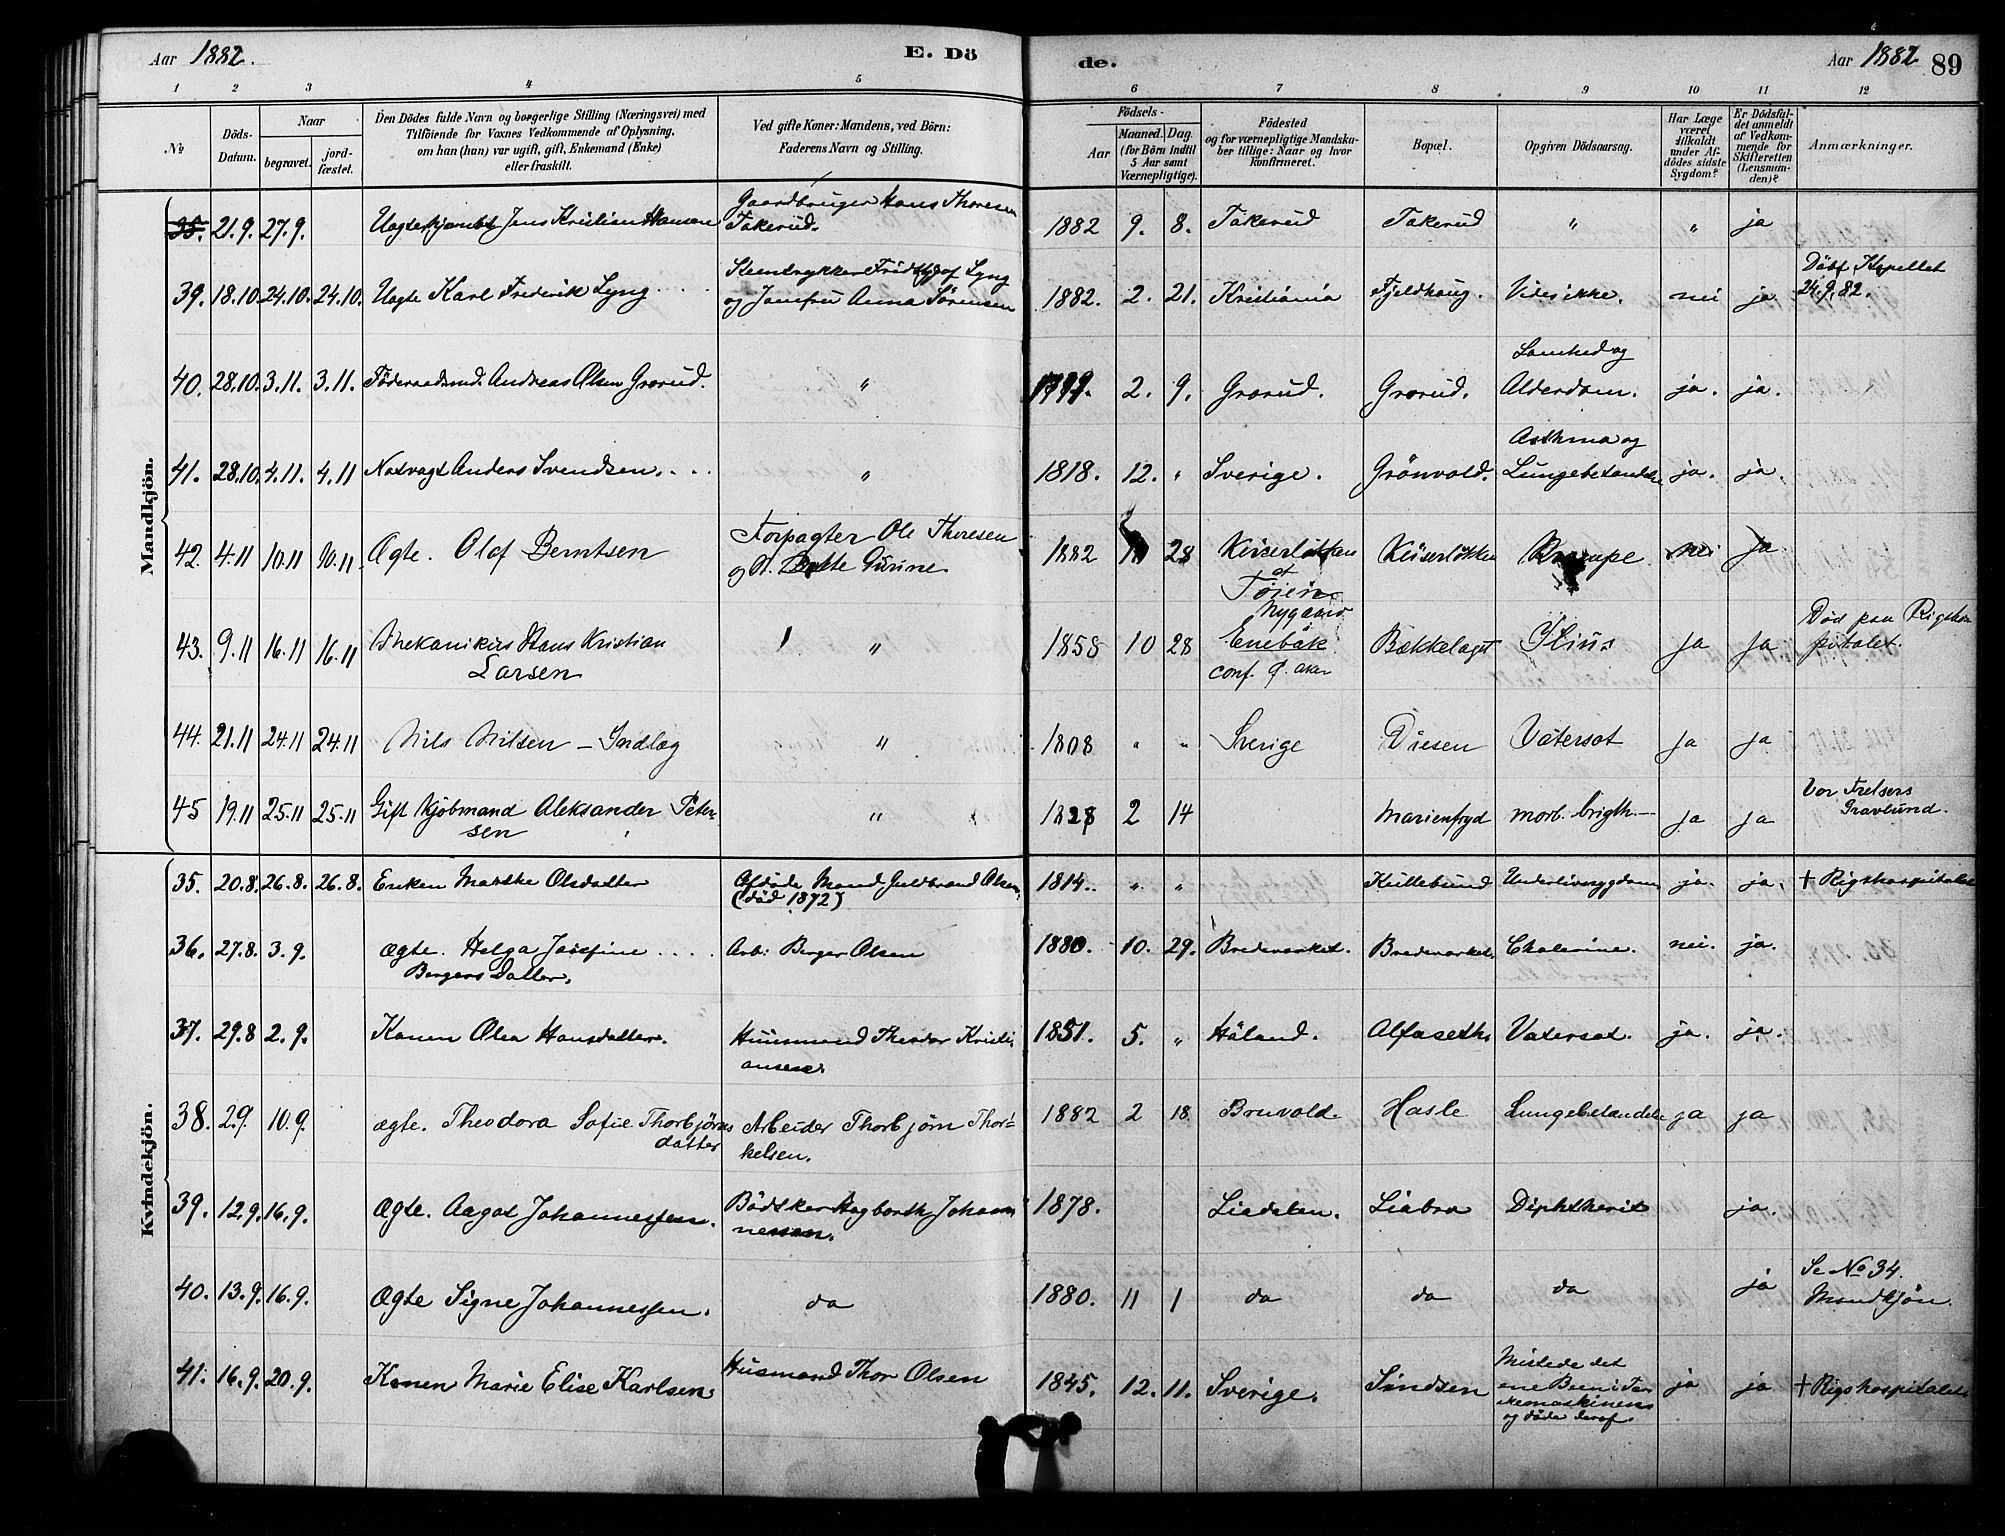 Aar 1882. E. Dö de. Aar 1882. 89
1 2 3 4 5 6 7 8 9 10 11 12
No
Döds-Datum.
Naar
begravet.
jord-fæstet.
Den Dödes fulde Navn og borgerlige Stilling (Næringsvei) med
Tilföiende for Voxnes Vedkommende af Oplysning,
om han (hun) var ugift, gift, Enkemand (Enke)
eller fraskilt.
Ved gifte Koner: Mandens, ved Börn:
Faderens Navn og Stilling.
Födsels-
Aar
Maaned. Dag.
(for Börn indtil
5 Aar samt
Værnepligtige).
Födested
og for værnepligtige Mandska-
ber tillige: Naar og hvor
konfirmeret.
Bopæl.
Opgiven Dödsaarsag.
Har Læge
været
tilkaldt
under Af-
dödes sidste
Sygdom?
Er Dödsfal-
det anmeldt
af Vedkom-
mende for
Skifteretten
(Lensman-
den)?
Anmærkninger.
Mandkjön.
35. 21.9. 27.9. Jens Kristian Hansen Gaardbruger Hans Thoresen
Takerud. 1882 9. 8. Takerud Takerud " " ja
39. 18.10. 24.10. 24.10. Uægte Karl Frederik Lyng Stentrykker Fridtjof Lyng
og Jomfru Anna Sørensen 1882. 2. 21. Kristiania Fjeldhaug. Vides ikke. nei ja Döbt Kapellet
24.9.82.
40. 28.10. 3.11. 3.11. Föderaadsmd. Andreas Olsen Grorud. " 2. 9. Grorud. Grorud. Lamhed og
Alderdom. ja. ja.
41. 28.10. 4.11. 4.11 Natvagt Anders Svendsen. " 1818. 12. " Sverige. Grönvold. Asthma og
Lungebetændelse ja. ja.
42. 4.11 10.11 10.11. Ægte. Olaf Berntsen Forpagter Ole Thoresen
og H. Gurine. 1882 28 Keiserløkken
Tøien Keiserløkken nei ja
43. 9.11 16.11 16.11 Mekanikus Hans Kristian
Larsen " 1858 10 28 Nygaard
Enebak
conf. Ø. Aker Bækkelaget Ilius ja ja Död paa Rigshos
pitalet.
44. 21.11 24.11 24.11 Nils Nilsen – Indlæg " 1808 " " Sverige Diesen Vatersot ja ja
45 19.11 25.11 25.11 Gift Kjöbmand Aleksander Peter-
sen " 1828 2 14 Marienfryd morb. brigth. ja ja Vor Frelsers
Gravlund.
Kvindekjön.
35. 20.8. 26.8. 26.8. Enken Marthe Olsdatter Afdöde Mand Guldbrand Olsen
(död 1872) 1814. " " Kullebund Underlivssygdom ja. ja. + Rigshospitalet
36. 27.8. 3.9. ægte. Helga Josefine
Bergers Datter. Arb: Berger Olsen 1880 10. 29. Bredevarket. Bredevarket. Cholerine. nei. ja.
37. 29.8 2.9. Konen Olea Hansdatter. Huusmand Theodor Kristi-
ansen. 1851. 5. " Höland. Alfaseth. Vatersot. ja. ja.
38. 2.9. 10.9. ægte. Theodora Sofie Thorbjörns
datter Arbeider Thorbjörn Thor-
kelsen. 1882 2 18. Bruvold. Hasle Lungebetændelse ja ja
39. 12.9. 16.9. Ægte. Aagot Johannessen. Bödker Hagbarth Johan-
nessen. 1878. Liadalen. Liabro Diphtherit ja.
40. 13.9. 16.9. Ægte Signe Johannessen. do 1880. 11 1 do do do ja Se No 34.
Mandkjön.
41. 16.9. 20.9. Konen Marie Elise Karlsen. Husmand Thor Olsen 1845. 12. 11. Sverige. Sindsen Mistede det
ene Been i Tær
skemaskinen
og döde deraf. ja ja + Rigshospitalet.